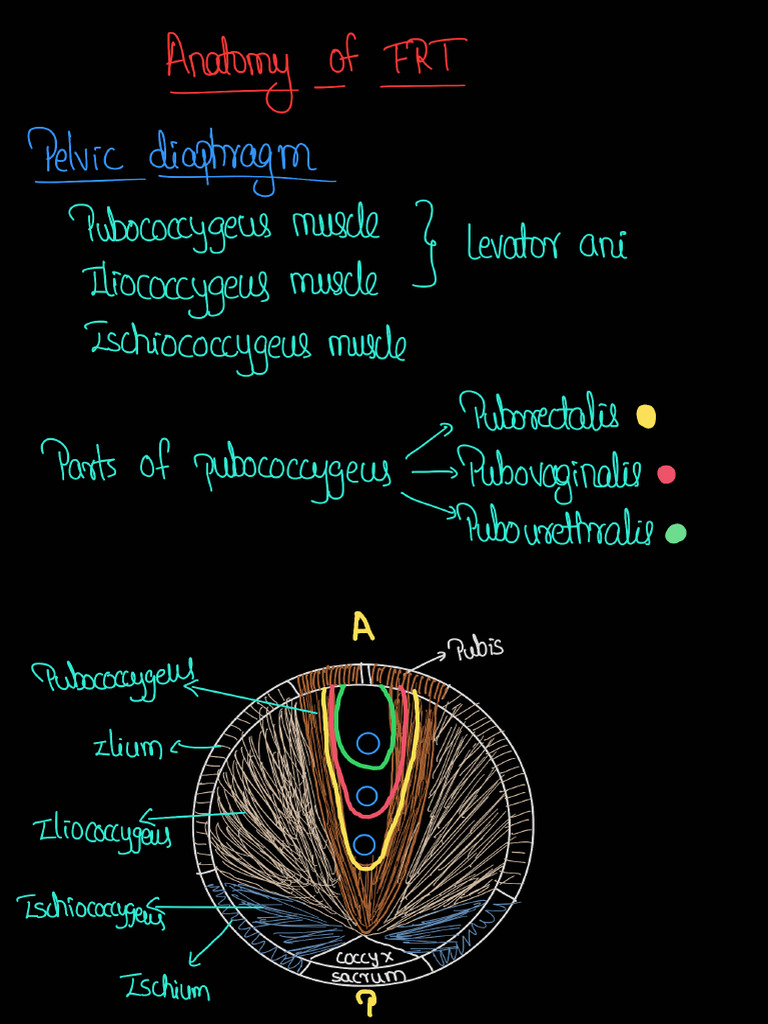 Anatomy of FRT
Pelvic diaphragm
Pubococcygeus muscle
Iliococcygeus muscle
Levator ani
Ischiococcygeus muscle
Parts of pubococcygeus
Puborectalis
Pubovaginalis
Pubourethralis
A
Pubis
Pubococcygeus
Ilium
Iliococcygeus
Ischiococcygeus
Ischium
coccyx
sacrum
P